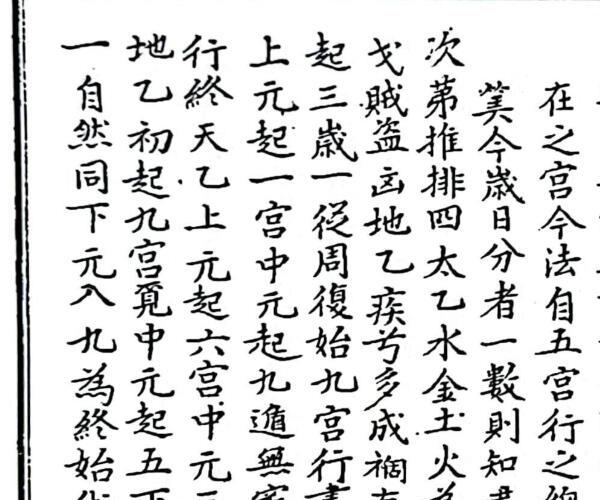 在之宫今法自五宫行之
筭今歲日分者一數則知
次苐推排四太乙水金土火
戈賊盗凶地乙疾兮多成禍
起三歲一從周復始九宫行
上元起一宫中元起九遁無
行終天乙上元起六宫中元
地乙初起九宫覓中元起五下
一自然同下元入九為終始